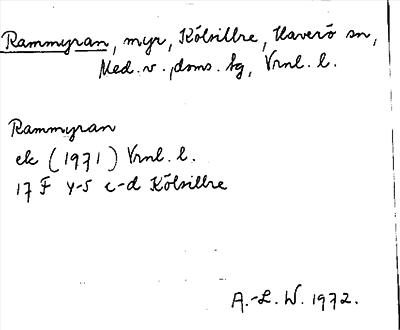 Rammyran, myr, Kölsillre, Haverö sn,
Med. v., doms. bg, Vrnl. l.
Rammyran
ek (1971) Vrnl. l.
17 F 4-5 c-d Kölsillre
A.-L. W. 1972.